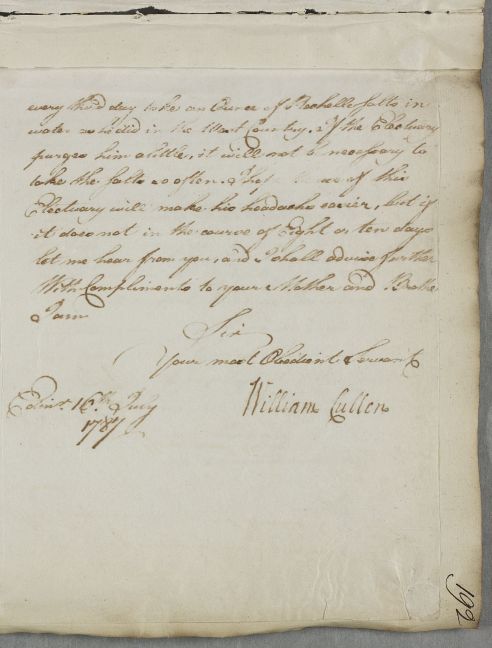 every third day take an Ounce of Rochelle salts in
water as he did in the West Country, If the Electuary
purges him a little, it will not be necessary to
take the salts so often. I hope the use of this
Electuary will make his headachs easier, but if
it does not in the course of Eight or ten days
let me hear from you, and I shall advise further
With Compliments to your Mother and
I am
Sir
Your most Obedient Servant
William Cullen
Edinr. 16th. July
1787
192